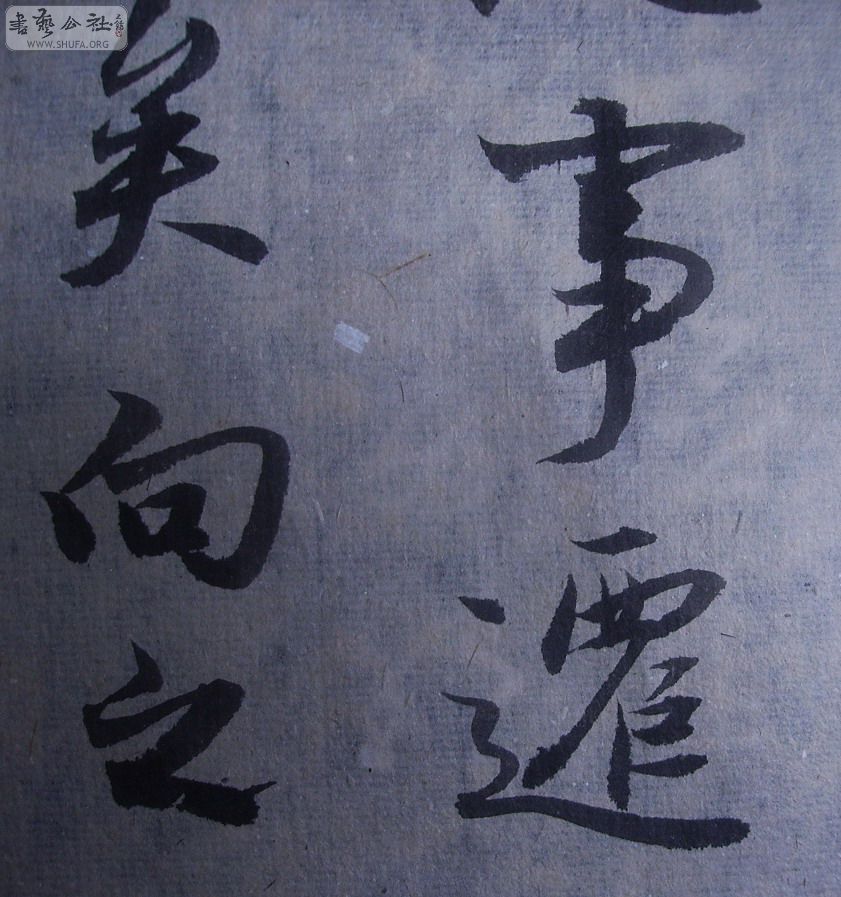 事遷
矣向之
書藝公社
WWW.SHUFA.ORG